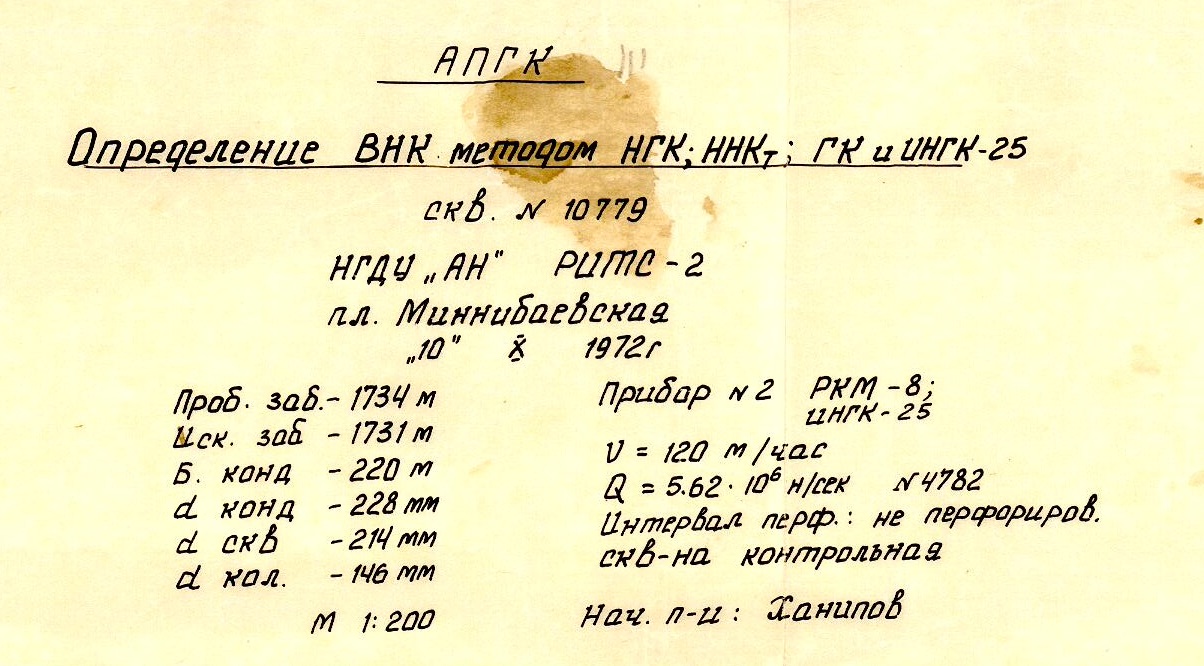 АПГК
Определение ВНК методом НГК; ННКт; ГК и ИНГК-25
скв. № 10779
НГДУ „АН" РИТС-2
пл. Миннибаевская
„10" X 1972г
Проб. заб. - 1734 м
Иск. заб - 1731 м
Б. конд - 220 м
d конд - 228 мм
d скв - 214 мм
d кол. - 146 мм
М 1:200
Прибор №2 РКМ-8;
ИНГК-25
V = 120 м/час
Q = 5.62·10⁶ н/сек №4782
Интервал перф.: не перфориров.
скв-на контрольная
Нач. п-и: Ханипов